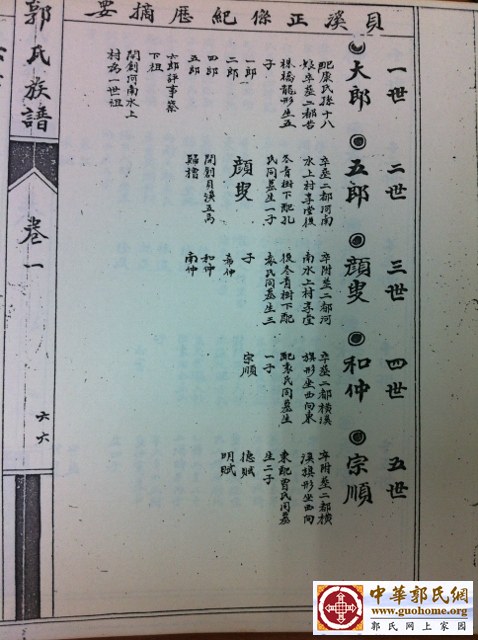 貝溪正條紀歷摘要
一世
大郎
配康氏孫十八
娘卒葬二都苦
株橋龍形生五
子
一郎
二郎
四郎
五郎
六郎評事葬
下祖
開創河南水上
村為一世祖
二世
五郎
卒葬二都河南
水上村享堂後
冬青樹下配孔
氏同墓生一子
顏叟
開創貝溪立為
歸宿
三世
顏叟
卒附葬二都河
南水上村享堂
後冬青樹下配
袁氏同墓生三
子
希仲
和仲
南仲
四世
和仲
卒葬二都橫溪
旗形坐西向東
配袁氏同墓生
一子
宗順
五世
宗順
卒附葬二都橫
溪旗形坐西向
東配曾氏同墓
生二子
德賦
明賦
郭氏族譜
卷一
六六
中華郭氏網
www.guohome.org
郭氏网上家园